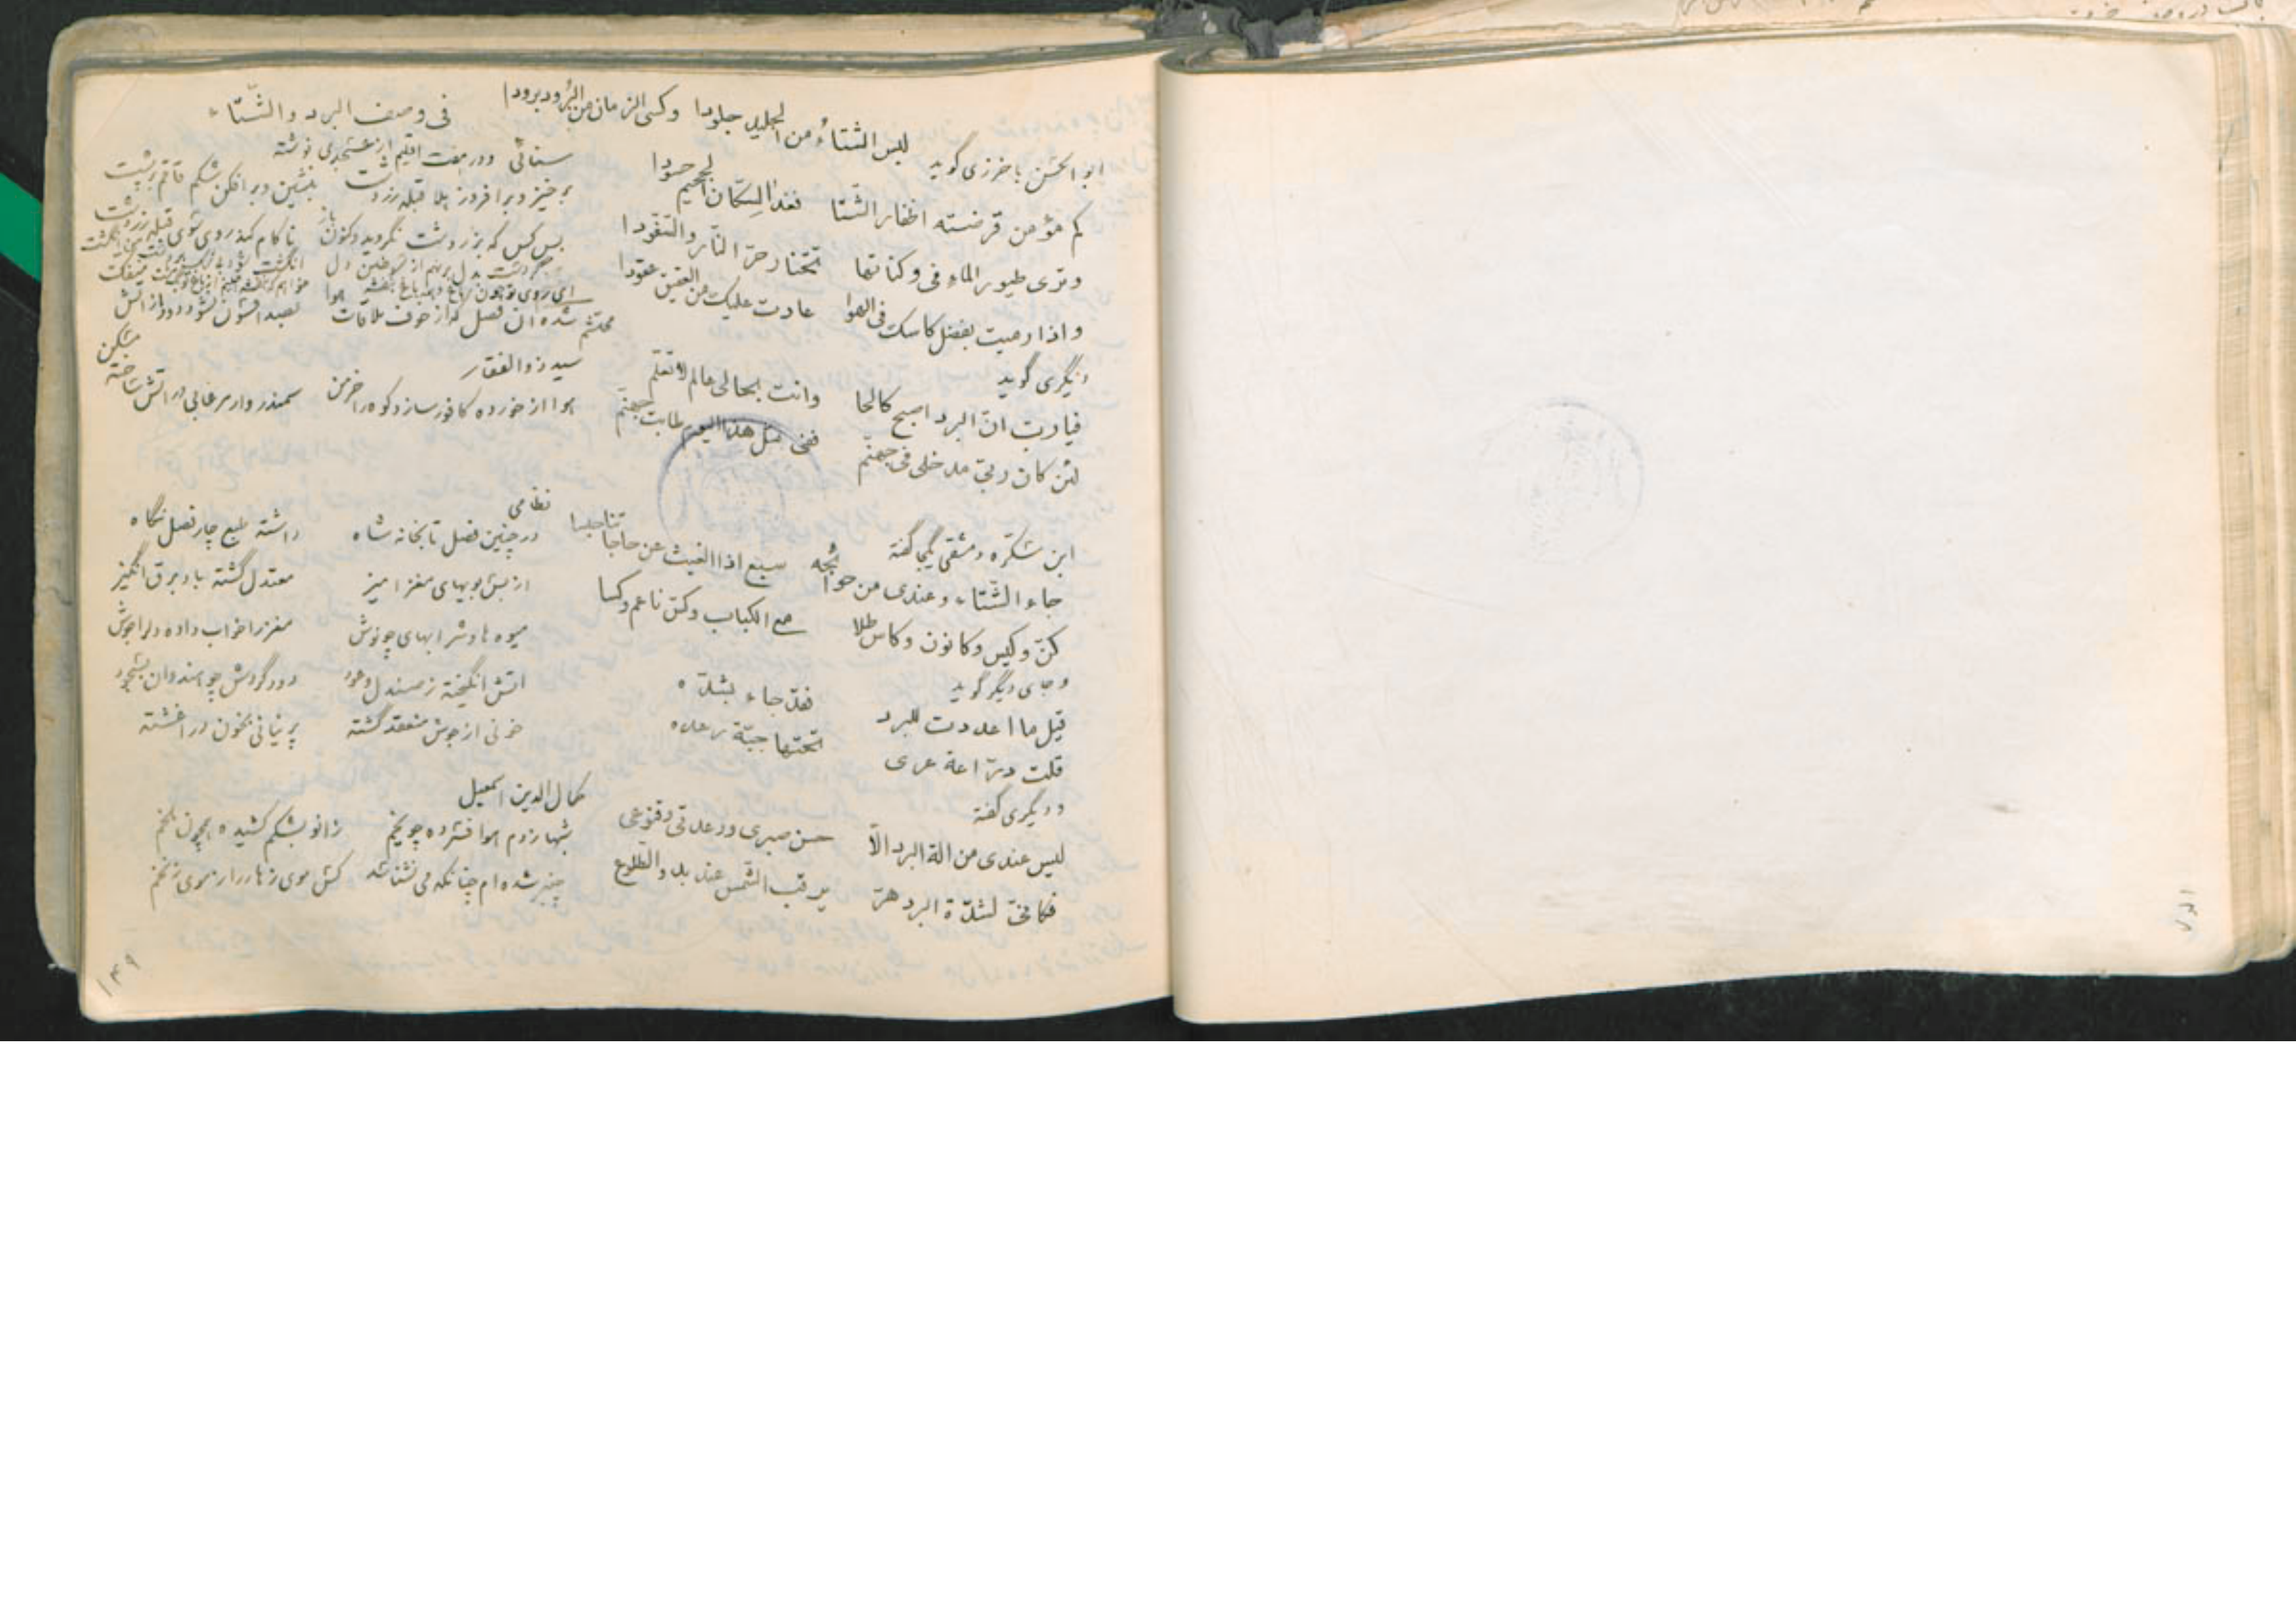 فی وصف البرد والشّتاء
ابو الحسن باخرزی گوید
لبس الشتاءُ من الجلید جلودا وکسی الزمان من البُرود برودا
کم مؤمن قرضته اظفار الشتا فغدا لسکّان الجحیم حسودا
وتری طیور الماءِ فی وکناتها تختار حرّ النّار والسّفّودا
واذا رمیت بفضل کاسک فی الهوا عادت علیک من العقیق عقودا
دیگری گوید
فیا ربّ انّ البرد اصبح کالحا وانت بحالی عالم لا تعلّم
لئن کان ربّی مدخلی فی جهنّم ففی مثل هذا الیوم طابت جهنّم
ابن سکّره دمشقی گفته
جاء الشّتاء وعندی من حوائجه سبع اذا الغیث عن حاجاتنا حبسا
کنّ وکیس وکانون وکاس طلا مع الکباب وکسّ ناعم وکسا
وجای دیگر گوید
قیل ما اعددت للبرد فقد جاء بشدّه
قلت درّاعة عری تحتها جبّة رعده
ودیگری گفته
لیس عندی من الة البرد الّا حسن صبری ورعدتی وقنوعی
فکانّی لشدّة البرد هرّ یرقب الشّمس عند بدو الطّلوع
سنائی ودر هفت اقلیم از عسجدی نوشته
برخیز وبرافروز هلا قبله زردشت بنشین وبرافکن شکم قاقم بر پشت
بس کس که بزردشت نگروید وکنون باز ناکام کند روی سوی قبله زردشت
محتشم
شده ان فصل که از خوف ملاقات هوا بصد افسون نشود دود از اتش
سید ذوالفقار
هوا از خورده کافور سازد کوه را خرمن سمندروار مرغابی در اتش ساخته مسکن
نظامی
در چنین فصل تابخانه شاه داشته طبع چار فصل نگاه
از بسی بویهای مغز امیز معتدل گشته باد برق انگیز
میوه ها وشرابهای چو نوش مغز را خواب داده دل را هوش
اتش انگیخته ز صندل وعود دود گردش چو هندوان بسجود
خونی از جوش منعقد گشته پرنیانی بخون در اغشته
کمال الدین اسمعیل
شبها ز دم هوا فسرده چو یخم زانو بشکم کشیده همچون ملخم
چنبر شده ام چنانکه می نشناسد کس موی زهار را ز موی زنخم
۱۴۹